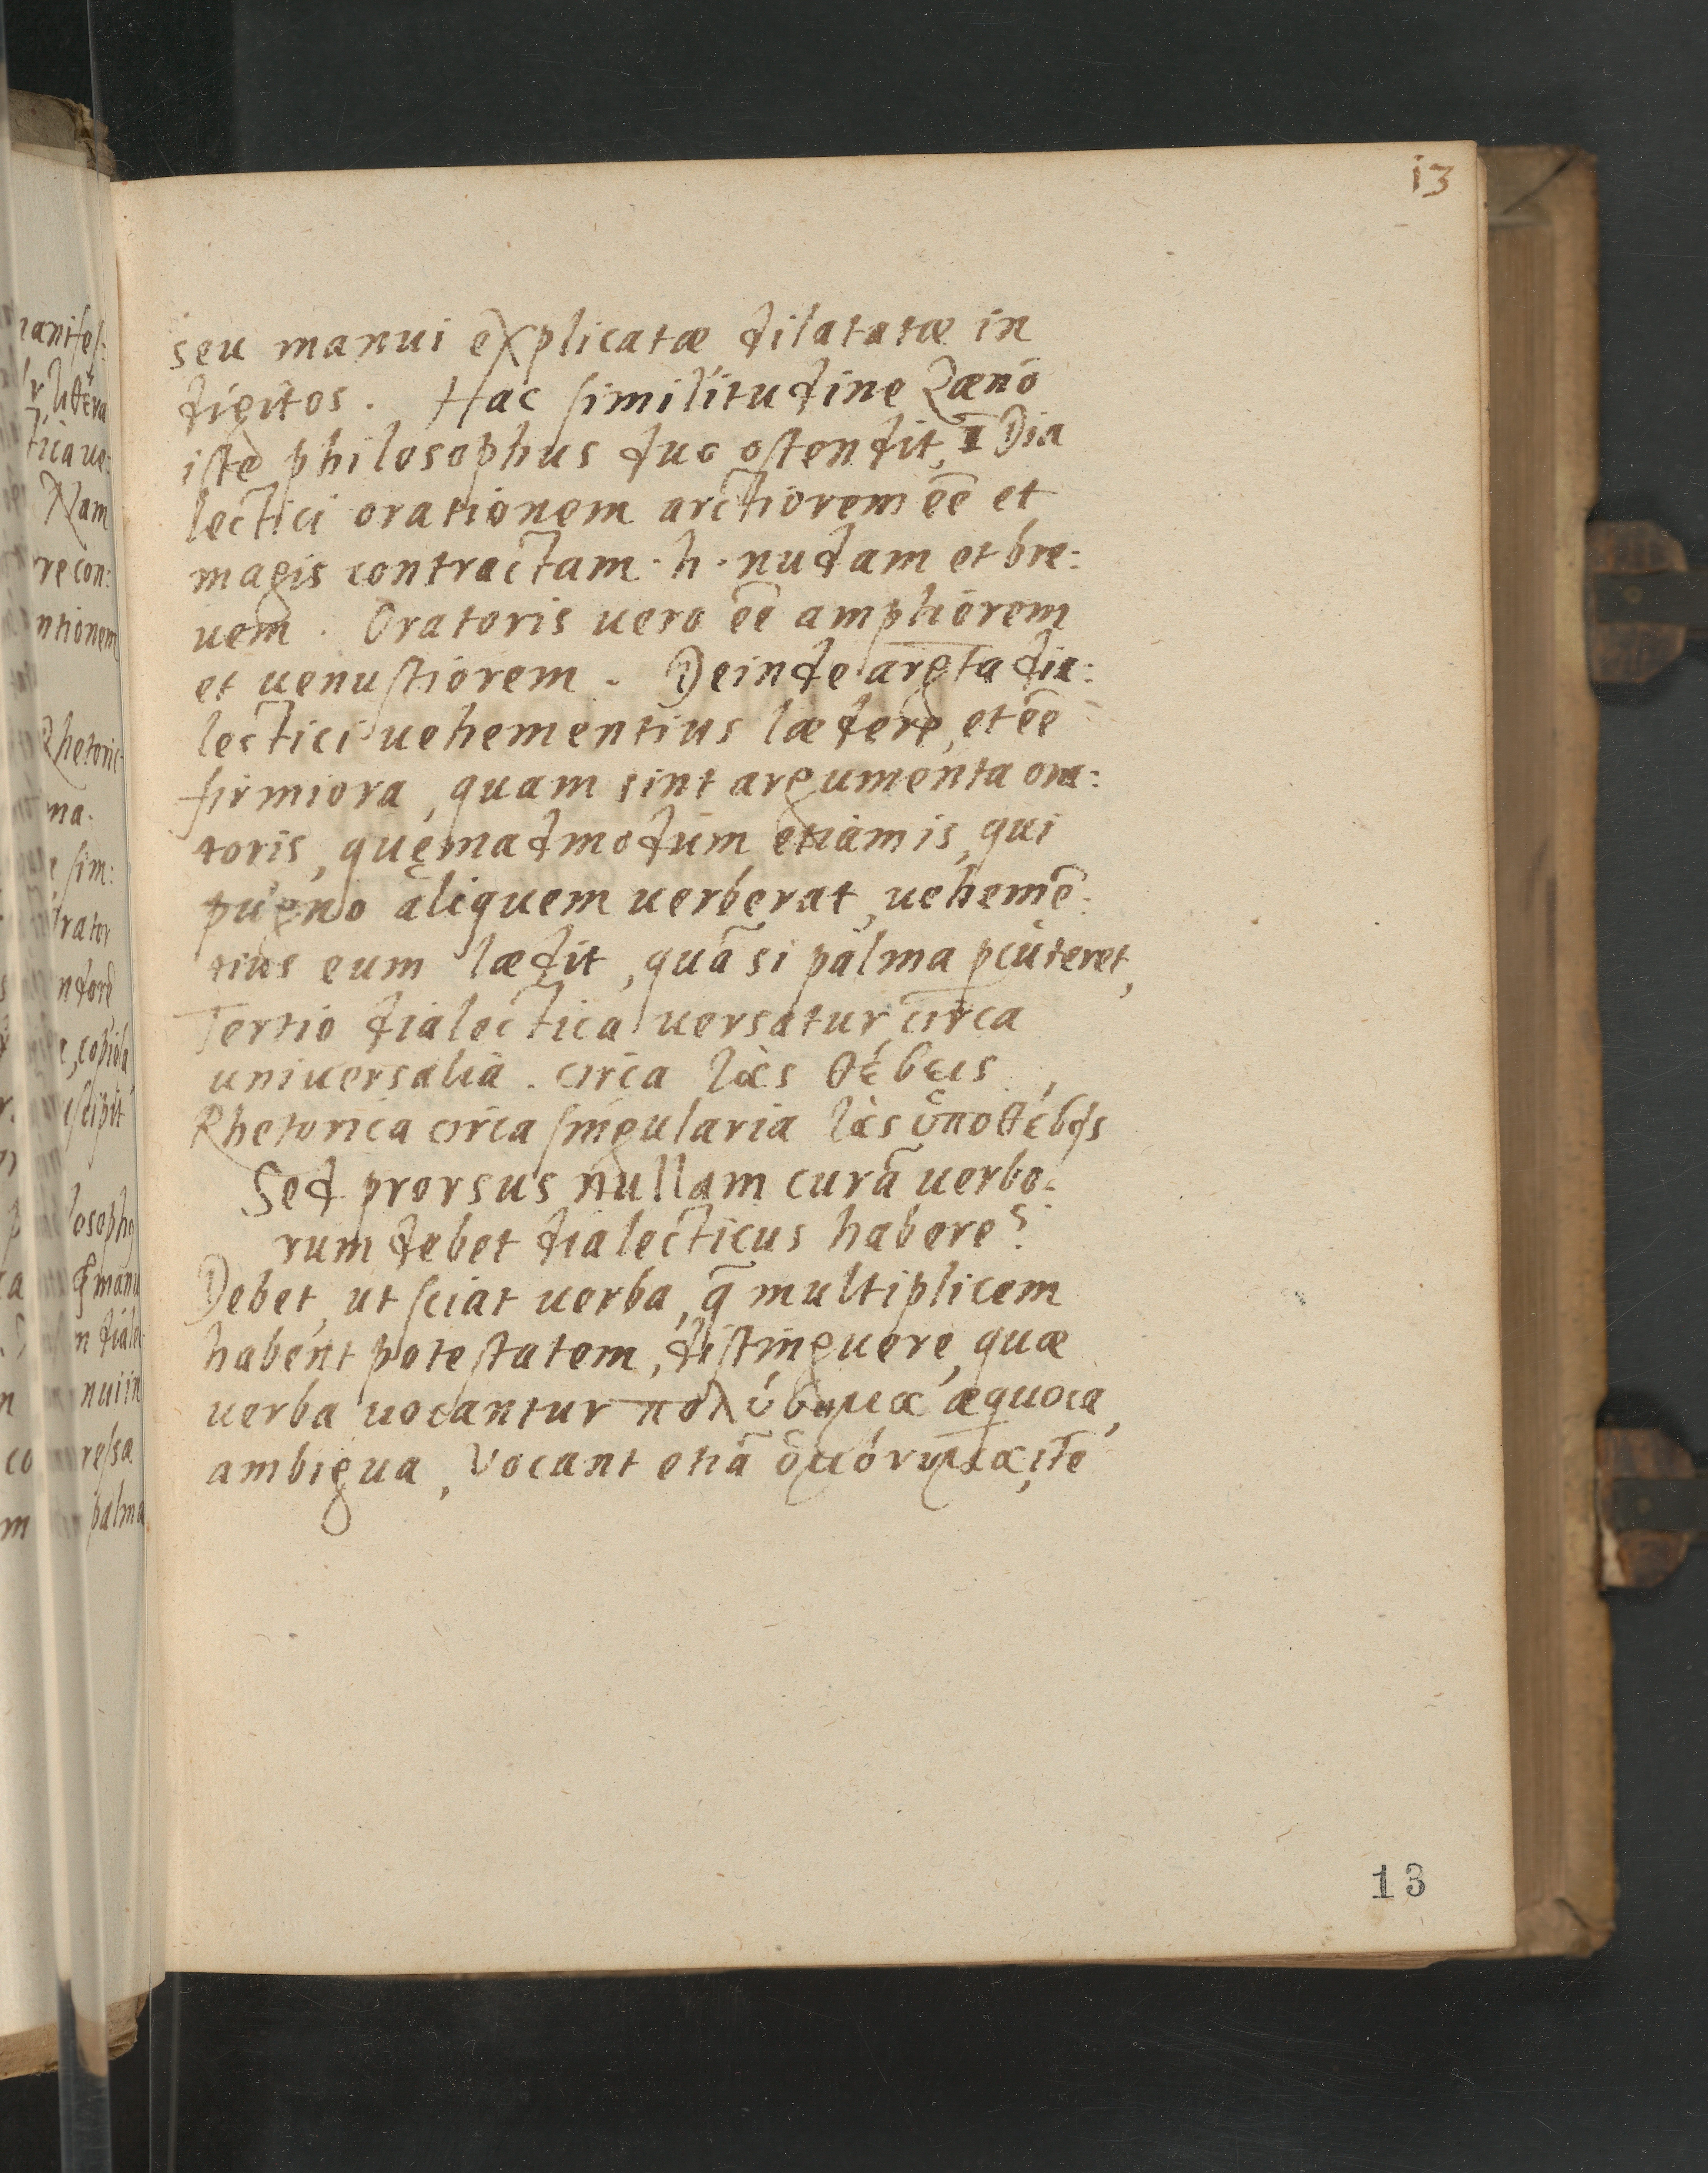 13
seu manui explicatæ dilatatæ in
digitos. Hac similitudine Zæno
iste philosophus duo ostendit, I Dia
lectici orationem arctiorem eē et
magis contractam. h. nudam et bre:
uem. Oratoris uero eē ampliorem
et uenustiorem. Deinde argta dia:
lectici uehementius lædere, et eē
firmiora, quam sint argumenta ora:
toris, quęmadmodum etiam is, qui
pugno aliquem uerberat, uehemē:
tius eum lædit, quā si palma pcuteret,
Tertio dialectica uersatur circa
uniuersalia. circa τὰς θέσεις,
Rhetorica circa singularia τὰς ὑποθέσεις
Sed prorsus nullam curā uerbo:
rum debet dialecticus habere?
Debet, ut sciat uerba, q̄ multiplicem
habent potestatem, distinguere, quæ
uerba uocantur πολύσημα æquoca,
ambigua, Vocant etiā ὁμόνυμα, itē
13